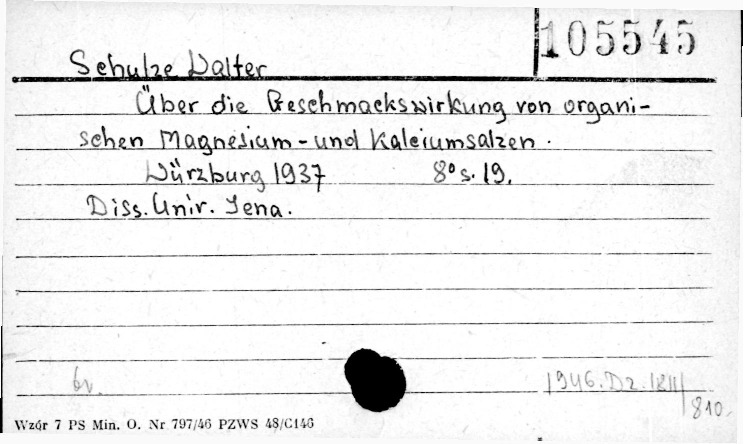 105545
Schulze Walter
Über die Geschmackswirkung von organi-
schen Magnesium - und Kaleiumsalzen.
Würzburg 1937 8° s. 19.
Diss. Univ. Jena.
br.
1946. Dz.
810.
Wzór 7 PS Min. O. Nr 797/46 PZWS 48/C146